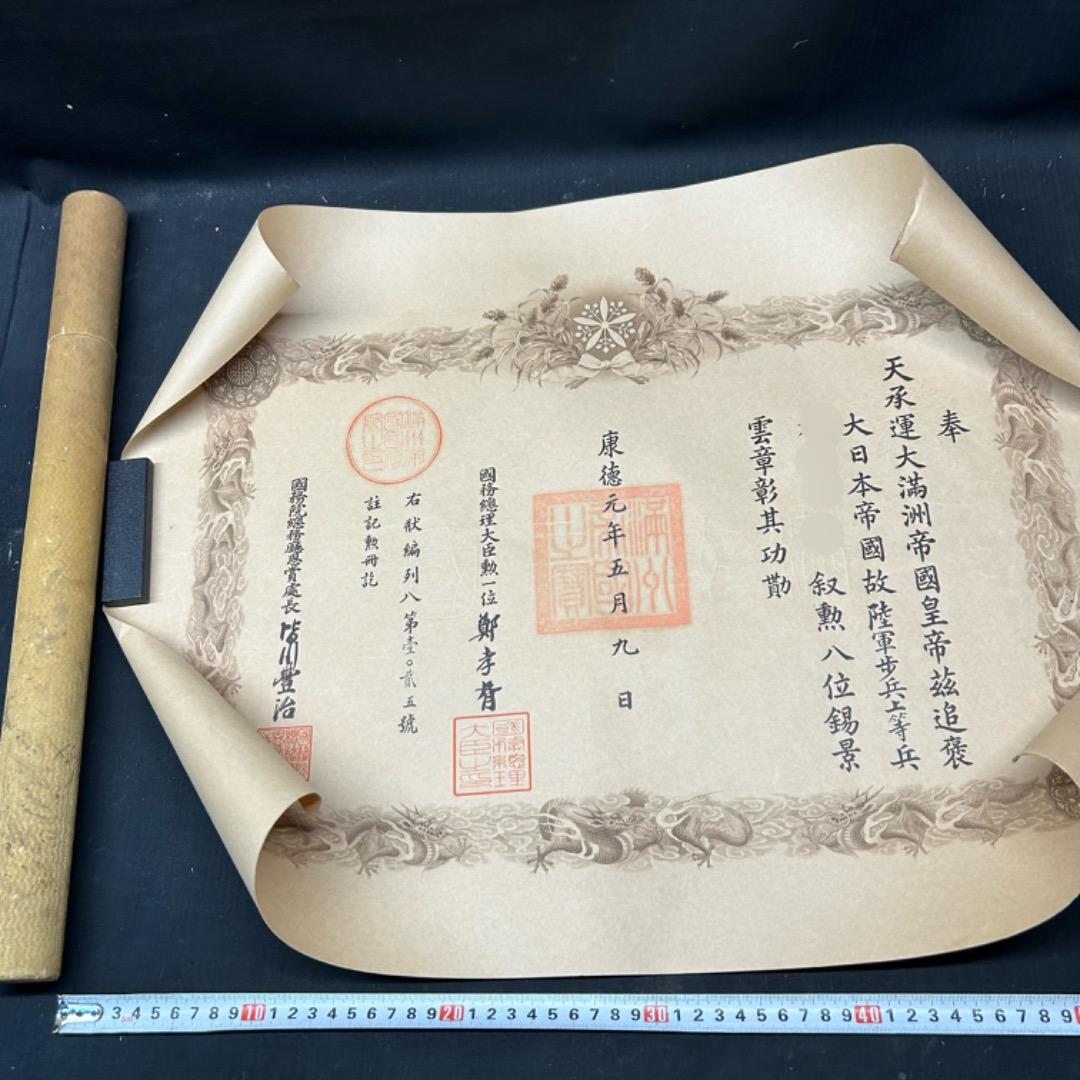 奉
天承運大滿洲帝國皇帝茲追褒
大日本帝國故陸軍步兵上等兵
叙勲八位錫景
雲章彰其功勛
康德元年五月九日
國務總理大臣勲一位 鄭孝胥
右狀編列八第壹〇貳五號
註記勲冊訖
國務院總務廳恩賞處長 皆川豐治
滿洲帝國之寶
3 4 5 6 7 8 9 10 1 2 3 4 5 6 7 8 9 20 1 2 3 4 5 6 7 8 9 30 1 2 3 4 5 6 7 8 9 40 1 2 3 4 5 6 7 8 9